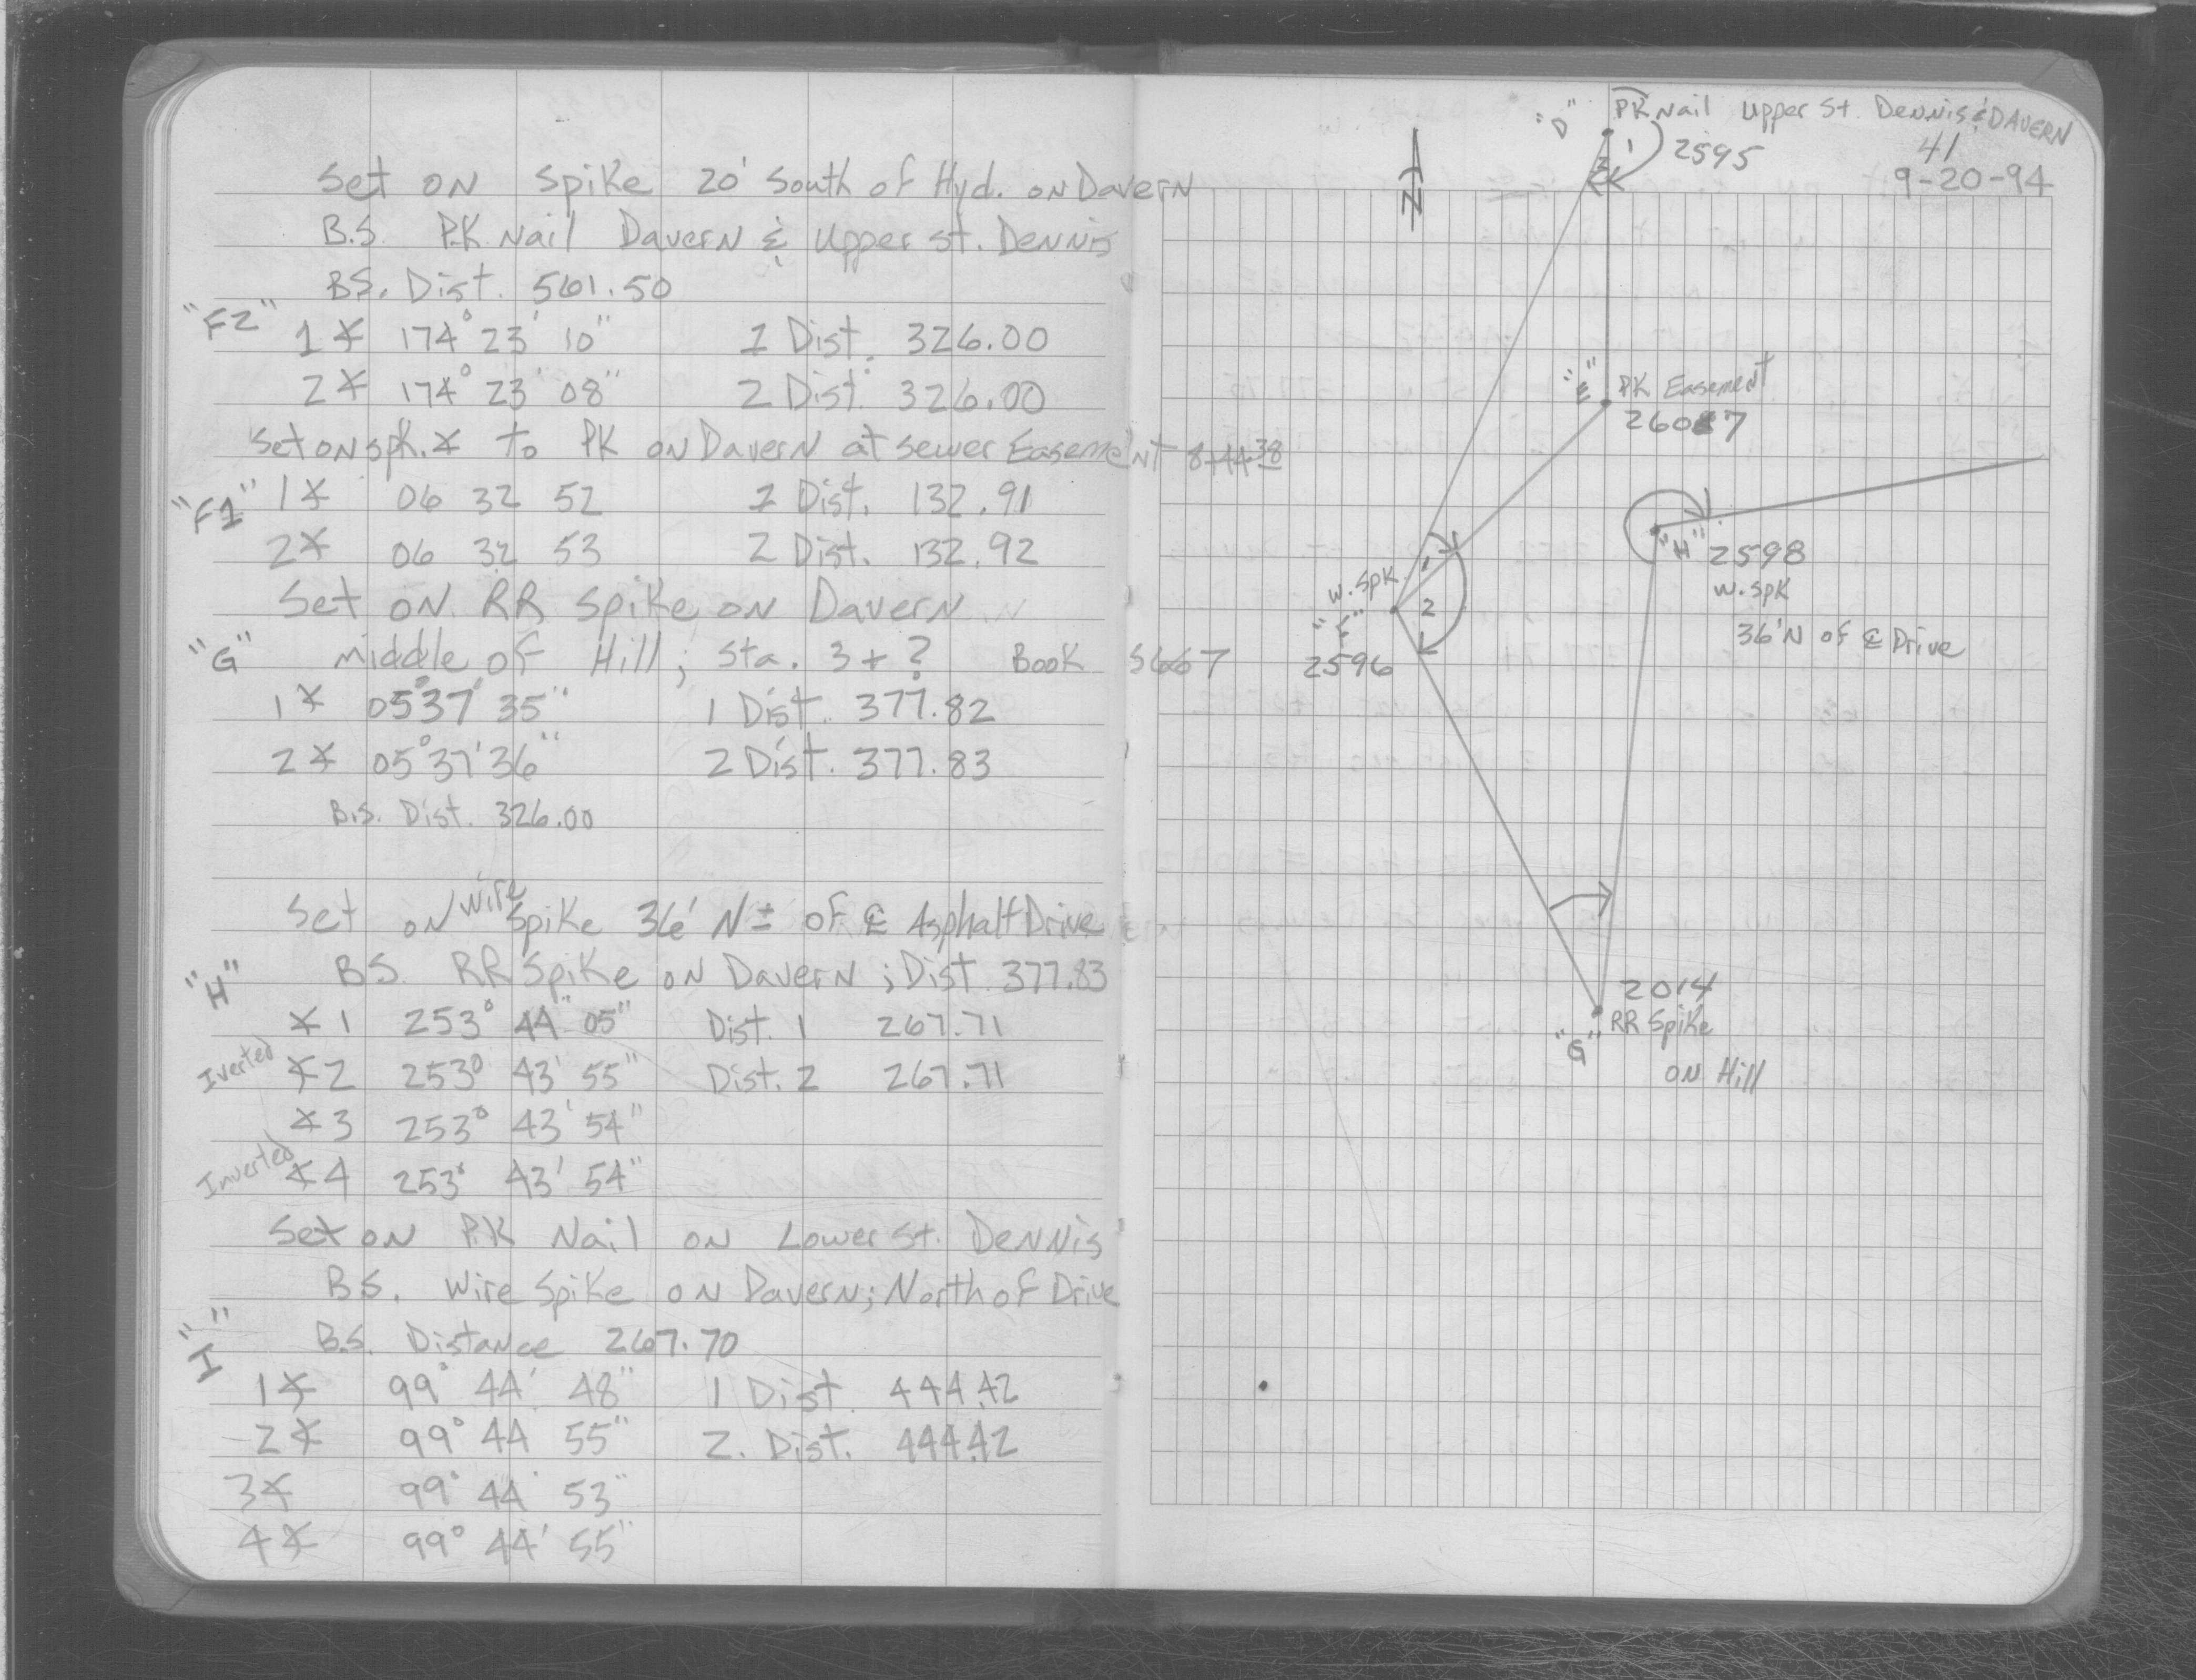 Set on Spike 20' South of Hyd. on Davern
B.S. P.K. Nail Davern & Upper St. Dennis
B.S. Dist. 561.50
"F2" 1∡ 174° 23' 10" 1 Dist. 326.00
2∡ 174° 23' 08" 2 Dist. 326.00
Set on spk. ∡ to PK on Davern at sewer Easement 8+44.38
"F1" 1∡ 06 32 52 1 Dist. 132.91
2∡ 06 32 53 2 Dist. 132.92
Set on RR Spike on Davern
"G" middle of Hill; Sta. 3+? Book 5667
1∡ 05°37'35" 1 Dist. 377.82
2∡ 05°37'36" 2 Dist. 377.83
B.S. Dist. 326.00
Set on wire Spike 36' N± of ℄ Asphalt Drive
"H" B.S. RR Spike on Davern; Dist. 377.83
∡1 253° 44" 05" Dist. 1 267.71
Iverted ∡2 253° 43' 55" Dist. 2 267.71
∡3 253° 43' 54"
Inverted ∡4 253° 43' 54"
Set on P.K Nail on Lower St. Dennis
B.S. Wire Spike on Davern; North of Drive
"I" B.S. Distance 267.70
1∡ 99° 44' 48" 1 Dist. 444.42
2∡ 99° 44 55" 2. Dist. 444.42
3∡ 99° 44' 53"
4∡ 99° 44' 55"
"D" PK Nail Upper St. Dennis & DAVERN
2595
41
9-20-94
1
2
N
"E" PK Easement
26087
"H" 2598
w. spk
36' N of ℄ Drive
w. spk
"F"
2596
1
2
2014
"G" RR Spike
on Hill